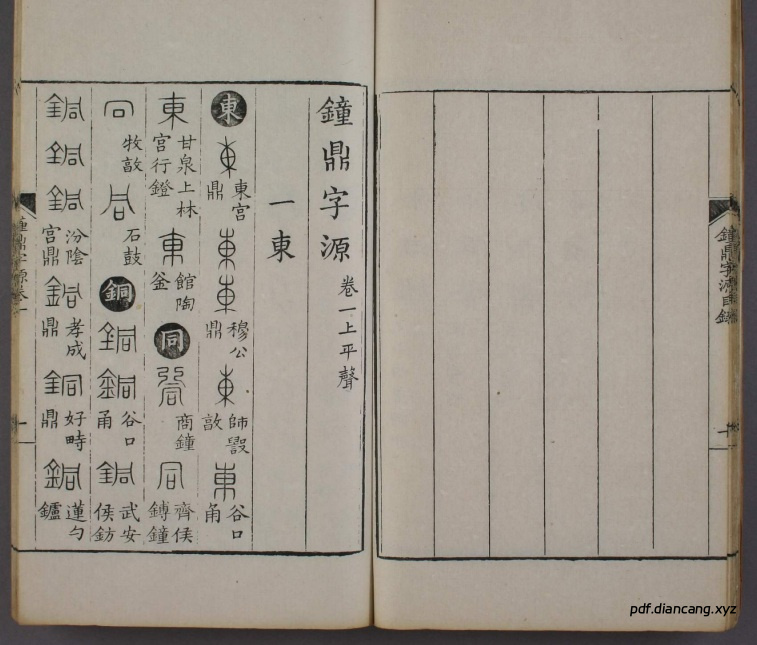 鐘鼎字源目錄
一
鐘鼎字源 卷一上平聲
一東
東 東 東宮鼎 東 東 穆公鼎 東 師㲄敦 東 谷口甬
東 甘泉上林宮行鐙 東 館陶釜 同 同 商鐘 同 齊侯鎛鐘
同 牧敦 同 石鼓 銅 銅 銅 谷口甬 銅 武安侯鈁
銅 銅 銅 汾陰宮鼎 銅 孝成鼎 銅 好畤鼎 銅 蓮勺鑪
鐘鼎字源卷一
一
pdf.diancang.xyz